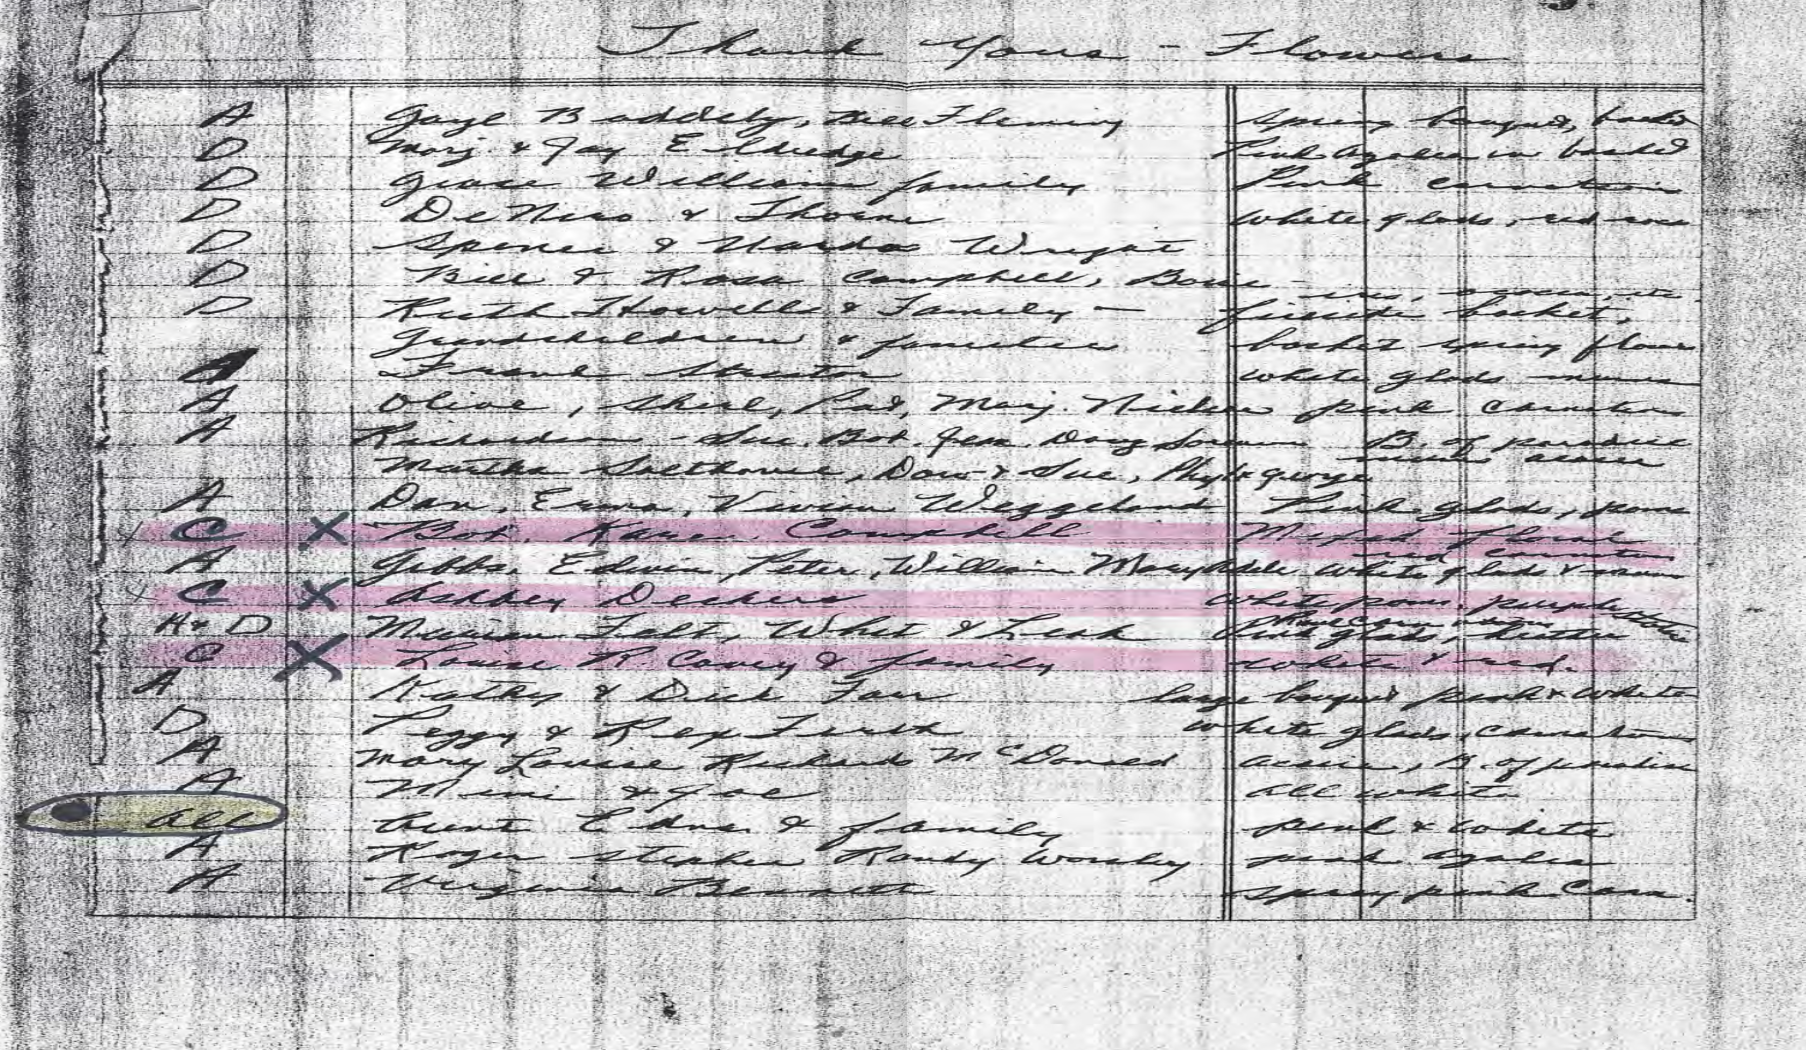 Thank Yous - Flowers
A Gayl Baddely, Bill Fleming spring bouquet, basket
D Marj & Jay Eldredge Pink azalea in basket
D Grace Williams family Pink carnations
D De Niro & Thorne white glads, red roses
D Spencer & Wright
D Bill & Rosa Campbell, Boise
D Ruth Howells & Family - fireside basket,
Grandchildren & families basket spring flowers
A Frank Streator white glads mums
A Olive, Sherl, Pat, Marj. pink carnations
A Richardson - Sue, Bob, Jean, Doug B. of paradise
Martha Salthouse, Dow & Sue, Phyl & George
A Dan, Erma, Vivian Weggeland Pink glads, poms
C X Bob, Karen Campbell Mixed floral
red carnation
A Gibbs, Edwin, Peter, William white glads & mums
C X Ashbey Deckers white poms, purple
H & D Marian Falt, Whit & Leah Pink glads, heather
C X Louise R. Covey & family white & red.
A Kathy & Dick Farr large bouquet pink & white
D Peggy & Rex Firth white glads, carnations
A Mary Louise Richards McDonald acacia, B. of paradise
A Mimi & Joe all white
All Aunt Edna & family pink & white
A Roger Stephen Randy Worsley pink azalea
A Virginia Bennett spray pink Carn.